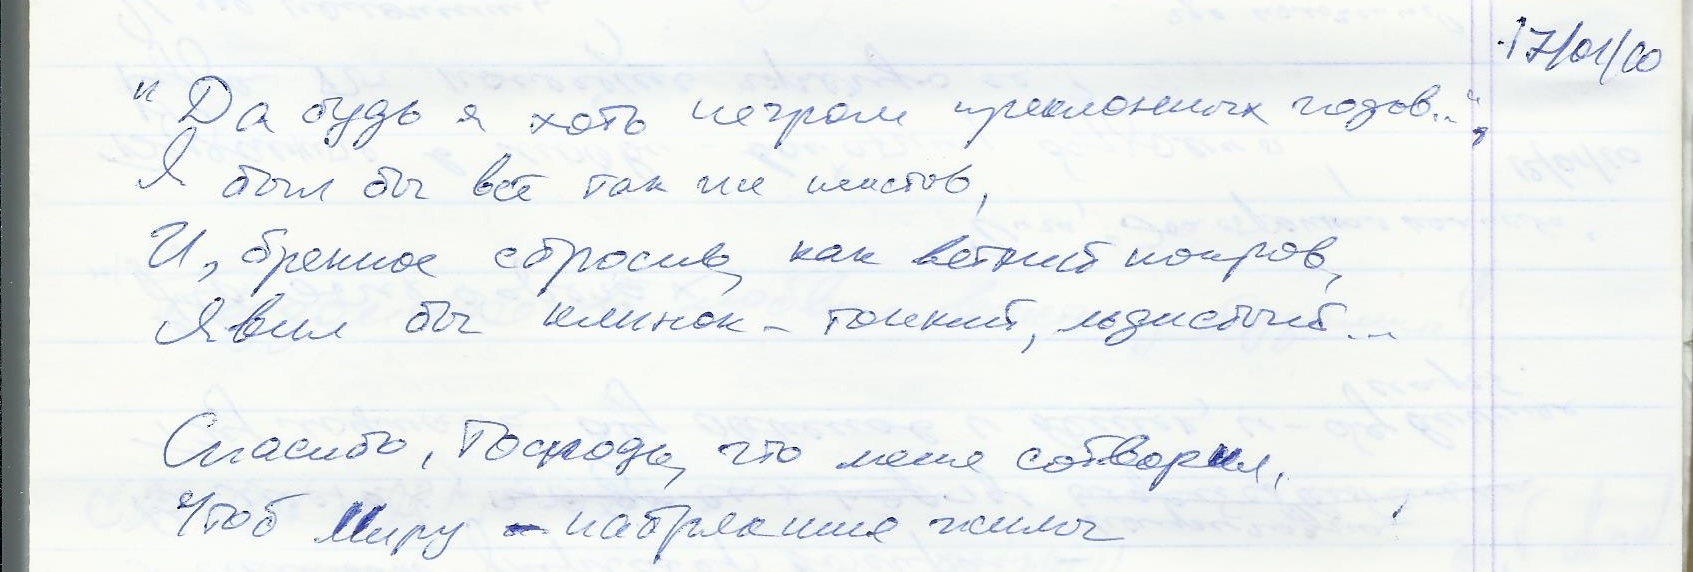 17/01/00
"Да будь я хоть негром преклонных годов..",
Я был бы всё так же неистов,
И, бренное сбросив, как ветхий покров,
Явил бы клинок – тонкий, льдистый...
Спасибо, Господь, что меня сотворил,
Чтоб Миру – набрякшие жилы